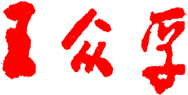 王众孚